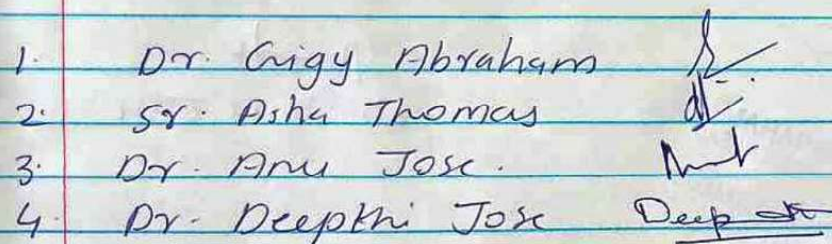 1. Dr. Gigy Abraham
2. Sr. Asha Thomas
3. Dr. Anu Jose.
4. Dr. Deepthi Jose Deep